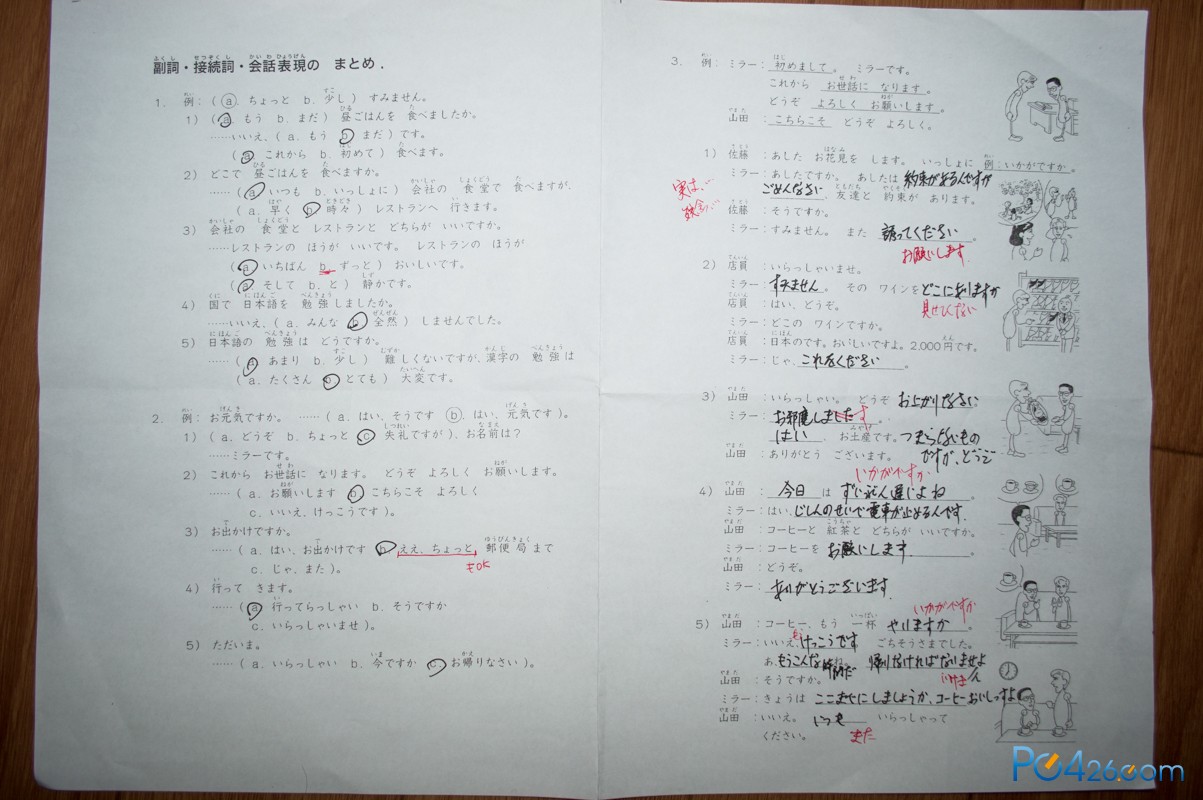 副詞・接続詞・会話表現の まとめ.
1. 例：( a. ちょっと b. 少し ) すみません。
1) ( a. もう b. まだ ) 昼ごはんを 食べましたか。
……いいえ、( a. もう b. まだ ) です。
( a. これから b. 初めて ) 食べます。
2) どこで 昼ごはんを 食べますか。
……( a. いつも b. いっしょに ) 会社の 食堂で 食べますが、
( a. 早く b. 時々 ) レストランへ 行きます。
3) 会社の 食堂と レストランと どちらが いいですか。
……レストランの ほうが いいです。 レストランの ほうが
( a. いちばん b. ずっと ) おいしいです。
( a. そして b. と ) 静かです。
4) 国で 日本語を 勉強しましたか。
……いいえ、( a. みんな b. 全然 ) しませんでした。
5) 日本語の 勉強は どうですか。
……( a. あまり b. 少し ) 難しくないですが、漢字の 勉強は
( a. たくさん b. とても ) 大変です。
2. 例：お元気ですか。 ……( a. はい、そうです b. はい、元気です )。
1) ( a. どうぞ b. ちょっと c. 失礼ですが )、お名前は？
……ミラーです。
2) これから お世話に なります。 どうぞ よろしく お願いします。
……( a. お願いします b. こちらこそ よろしく
c. いいえ、けっこうです )。
3) お出かけですか。
……( a. はい、お出かけです b. ええ、ちょっと 郵便局まで
もOK
c. じゃ、また )。
4) 行って きます。
……( a. 行ってらっしゃい b. そうですか
c. いらっしゃいませ )。
5) ただいま。
……( a. いらっしゃい b. 今ですか c. お帰りなさい )。
3. 例：ミラー：初めまして。 ミラーです。
これから お世話に なります。
どうぞ よろしく お願いします。
山田：こちらこそ どうぞ よろしく。
1) 佐藤：あした お花見を します。 いっしょに 例：いかがですか。
ミラー：あしたですか。 あしたは 約束があるんですが
実は、…
ごめんなさい 友達と 約束が あります。
残念…
佐藤：そうですか。
ミラー：すみません。 また 誘ってください。
お願いします
2) 店員：いらっしゃいませ。
ミラー：すみません。 その ワインを どこにありますか
見せてください
店員：はい、どうぞ。
ミラー：どこの ワインですか。
店員：日本のです。おいしいですよ。2,000円です。
ミラー：じゃ、これをください
3) 山田：いらっしゃい。 どうぞ お上がりなさい
ミラー：お邪魔しました す
はい、お土産です。つまらないもの
山田：ありがとう ございます。 ですが、どうぞ
いかがですか
4) 山田：今日 は ずいぶん遅いよね。
ミラー：はい、じしんのせいで電車が止めるんです。
山田：コーヒーと 紅茶と どちらが いいですか。
ミラー：コーヒーを お願いします。
山田：どうぞ。
ミラー：ありがとうございます
いかがですか
5) 山田：コーヒー、もう 一杯 やりますか。
ミラー：いいえ、けっこうです ごちそうさまでした。
もう
あ、もうこんな時間だね。 帰りなければないませよ
いけません
山田：そうですか。
ミラー：きょうは ここまでにしましょうか、コーヒーおいしっすよ
山田：いいえ。 いつも いらっしゃって
ください。 また
PC426.com